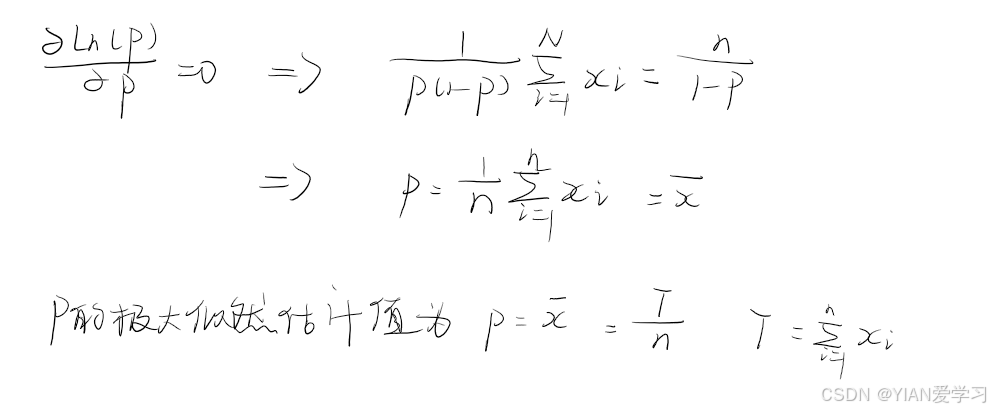 ∂Ln(p)/∂p = 0 => 1/(p(1-p)) ∑_{i=1}^{N} xi = n/(1-p)
=> p = 1/n ∑_{i=1}^{n} xi = x̄
P的极大似然估计值为 p = x̄ = T/n T = ∑_{i=1}^{n} xi
CSDN @YIAN爱学习